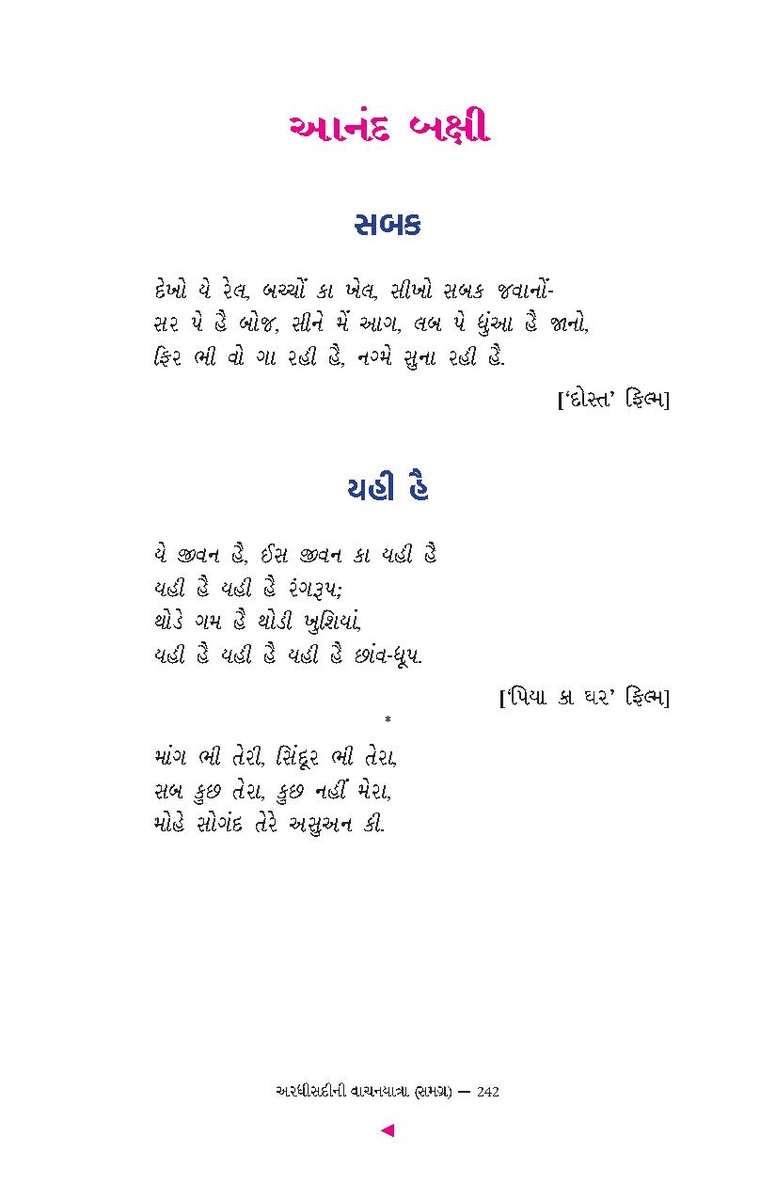 આનંદ બક્ષી
સબક
દેખો યે રેલ, બચ્ચોં કા ખેલ, સીખો સબક જવાનોં-
સર પે હૈ બોજ, સીને મેં આગ, લબ પે ધુંઆ હૈ જાનો,
ફિર ભી વો ગા રહી હૈ, નગ્મે સુના રહી હૈ.
[‘દોસ્ત’ ફિલ્મ]
યહી હૈ
યે જીવન હૈ, ઈસ જીવન કા યહી હૈ
યહી હૈ યહી હૈ રંગરૂપ;
થોડે ગમ હૈ થોડી ખુશિયાં,
યહી હૈ યહી હૈ યહી હૈ છાંવ-ધૂપ.
[‘પિયા કા ઘર’ ફિલ્મ]
*
માંગ ભી તેરી, સિંદૂર ભી તેરા,
સબ કુછ તેરા, કુછ નહીં મેરા,
મોહે સોગંદ તેરે અસુઅન કી.
અરધીસદીની વાચનયાત્રા (સમગ્ર) — 242